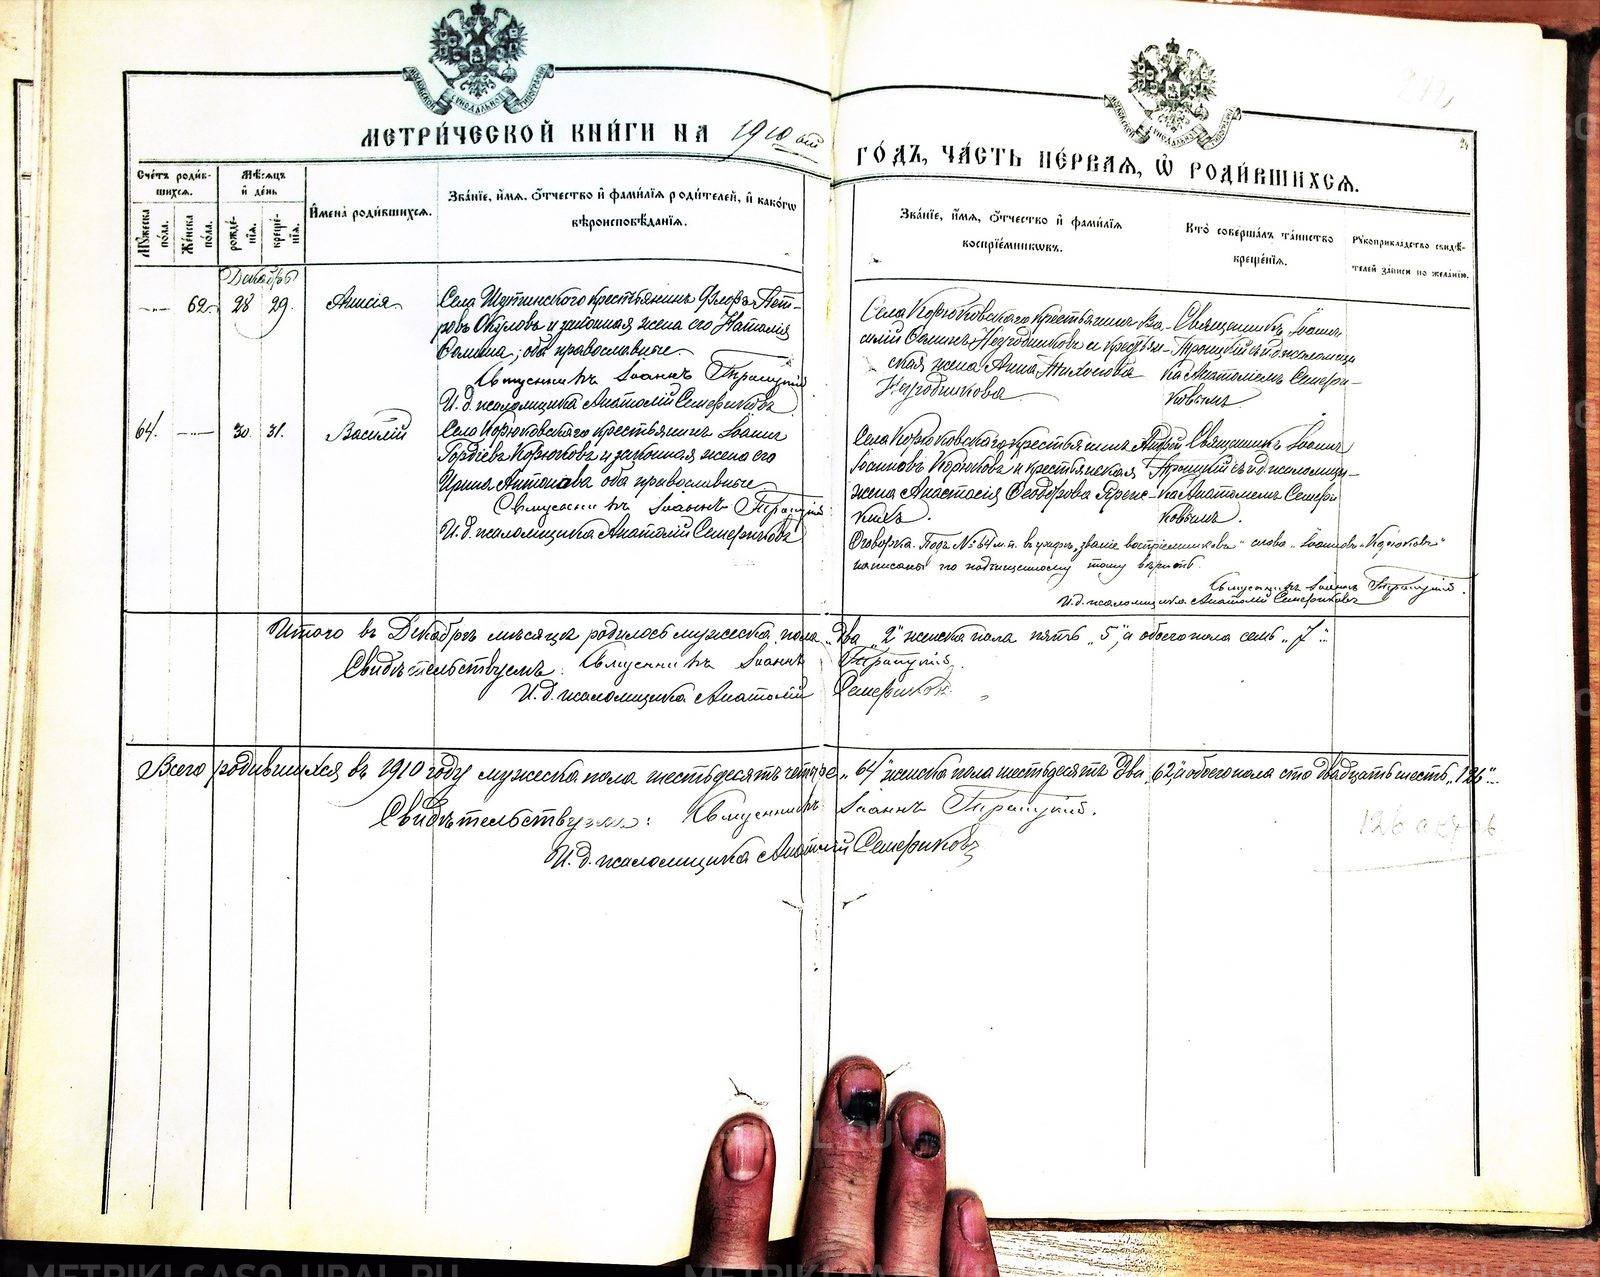 МЕТРИ́ЧЕСКОЙ КНИ́ГИ НА 1910 ый
ГО́ДЪ, ЧА́СТЬ ПЕ́РВАЯ, Ѡ҆ РОДИ́ВШИХСЯ.
Сче́тъ роди́вшихся.
Мѣ́сяцъ и҆ де́нь
Мꙋ́жеска по́ла.
Же́нска по́ла.
рожде́нїя.
креще́нїя.
И҆мена̀ роди́вшихся.
Зва́нїе, и҆́мя, ѻ҆́тчество и҆ фами́лїя роди́телей, и҆ како́гѡ
вѣроисповѣ́данїя.
Зва́нїе, и҆́мя, ѻ҆́тчество и҆ фами́лїя
воспрїе́мникѡвъ.
Кто̀ соверша́лъ та́инство
креще́нїя.
Рꙋкоприкла́дство свидѣ́-
телей за́писи по жела́нїю.
Декабрь
62. 28 29. Анисія
Села Шутинскаго крестьянинъ Флоръ Пет-
ровъ Окуловъ и законная жена его Наталія
Фомина, оба православные.
Священникъ Іоаннъ Троицкій
И. д. псаломщика Анатолій Семериковъ
Села Корюковскаго крестьянинъ Ва-
силій Фоминъ и крестьян-
ская жена Анна Тихонова
Священникъ Іоаннъ
Троицкій съ и.д. псаломщи-
ка Анатоліемъ Семери-
ковымъ.
64. 30. 31. Василій
Села Корюковскаго крестьянинъ Іоаннъ
Гордіевъ Корюковъ и законная жена его
Ирина Антонова оба православные
Священникъ Іоаннъ Троицкій
И. д. псаломщика Анатолій Семериковъ
Села Корюковскаго крестьянинъ Андрей
Іоанновъ Корюковъ и крестьянская
жена Анастасія Феодорова
Священникъ Іоаннъ
Троицкій съ и.д. псаломщи-
ка Анатоліемъ Семери
ковымъ.
Оговорка. Подъ № 64 м.п. въ графѣ „званіе воспріемниковъ" слова „Іоанновъ Корюковъ"
написаны по подчищенному тому вѣрить.
Священникъ Іоаннъ Троицкій.
И. д. псаломщика Анатолій Семериковъ
Итого въ Декабрѣ мѣсяцѣ родилось мужеска пола „два „2" женска пола пять „5", а обоего пола семь „7".
Свидѣтельствуемъ: Священникъ Іоаннъ Троицкій.
И. д. псаломщика Анатолій Семериковъ.
Всего родившихся въ 1910 году мужеска пола шестьдесятъ четыре „64" женска пола шестьдесятъ два „62", а обоего пола сто двадцать шесть „126".
Свидѣтельствуемъ: Священникъ Іоаннъ Троицкій.
И. д. псаломщика Анатолій Семериковъ
126 актов
METRIKI.GASO-URAL.RU